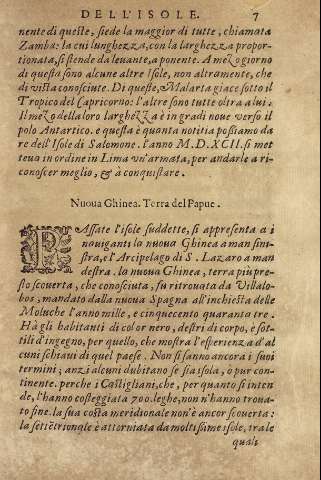 DELL'ISOLE. 7
nente di queste, siede la maggior di tutte, chiamata
Zamba: la cui lunghezza, con la larghezza propor-
tionata, si stende da leuante, a ponente. A mezogiorno
di questa sono alcune altre Isole, non altramente, che
di vista conosciute. Di queste, Malarta giace sotto il
Tropico del Capricorno: l'altre sono tutte oltra a lui.
Il mezo della loro larghezza è in gradi noue verso il
polo Antartico. e questa è quanta notitia possiamo da
re dell'Isole di Salomone. l'anno M.D.XCII. si met
teua in ordine in Lima vn'armata, per andarle a ri-
conoscer meglio, & à conquistare.
Nuoua Ghinea. Terra del Papue.
PAssate l'isole suddette, si appresenta a i
nauiganti la nuoua Ghinea a man sini-
stra, e l'Arcipelago di S. Lazaro a man
destra. la nuoua Ghinea, terra più pre-
sto scouerta, che conosciuta, fu ritrouata da Villalo-
bos, mandato dalla nuoua Spagna all'inchiesta delle
Moluche l'anno mille, e cinquecento quaranta tre.
Hà gli habitanti di color nero, destri di corpo, e sot-
tili d'ingegno, per quello, che mostra l'esperienza d'al
cuni schiaui di quel paese. Non si sanno ancora i suoi
termini; anzi alcuni dubitano se sia isola, ò pur con-
tinente. perche i Castigliani, che, per quanto si inten
de, l'hanno costeggiata 700. leghe, non n'hanno troua-
to fine. la sua costa meridionale non è ancor scouerta:
la settētrionale è attorniata da moltissime isole, tra le
quali